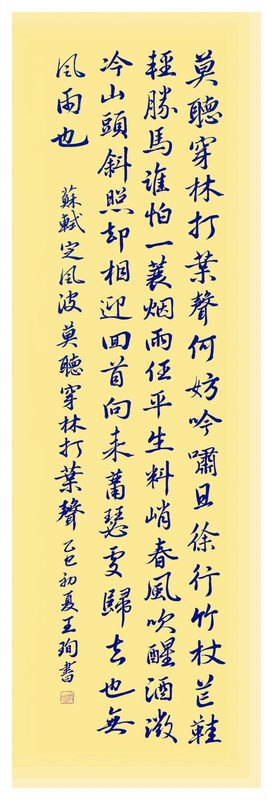 莫聽穿林打葉聲何妨吟嘯且徐行竹杖芒鞋
輕勝馬誰怕一蓑烟雨任平生料峭春風吹醒酒微
冷山頭斜照却相迎回首向来蕭瑟處歸去也無
風雨也
蘇軾定風波莫聽穿林打葉聲 乙巳初夏王珣書